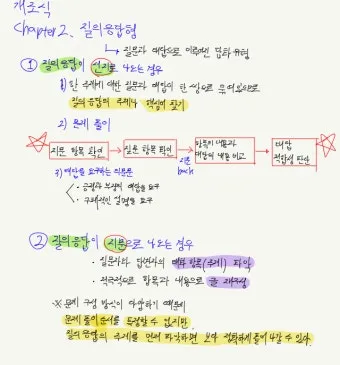 개조식
Chapter 2. 질의응답형
↳ 질문과 대답으로 이루어진 담화 유형
① 질의응답이 선지로 나오는 경우
1) 한 주제에 대한 질문과 대답이 한 쌍으로 묶여있으므로
질의 응답의 주제나 핵심어 찾기
2) 문제 풀이
지문 항목 확인 → 질문 항목 확인 → 항목의 내용과 대답의 내용 비교 → 대답 적절성 판단
지문 back
3) 대답을 요구하는 의문문
· 긍정과 부정의 대답을 요구
· 구체적인 설명을 요구
② 질의응답이 지문으로 나오는 경우
· 질문자와 답변자의 항목(주제) 파악
· 적극적으로 항목과 내용으로 글 재구성
※ 문제 구성 방식이 다양하기 때문에
문제 풀이 순서를 특정할 수 없지만,
질의응답의 주제를 먼저 파악하면 보다 정확하게 풀어 나갈 수 있다.